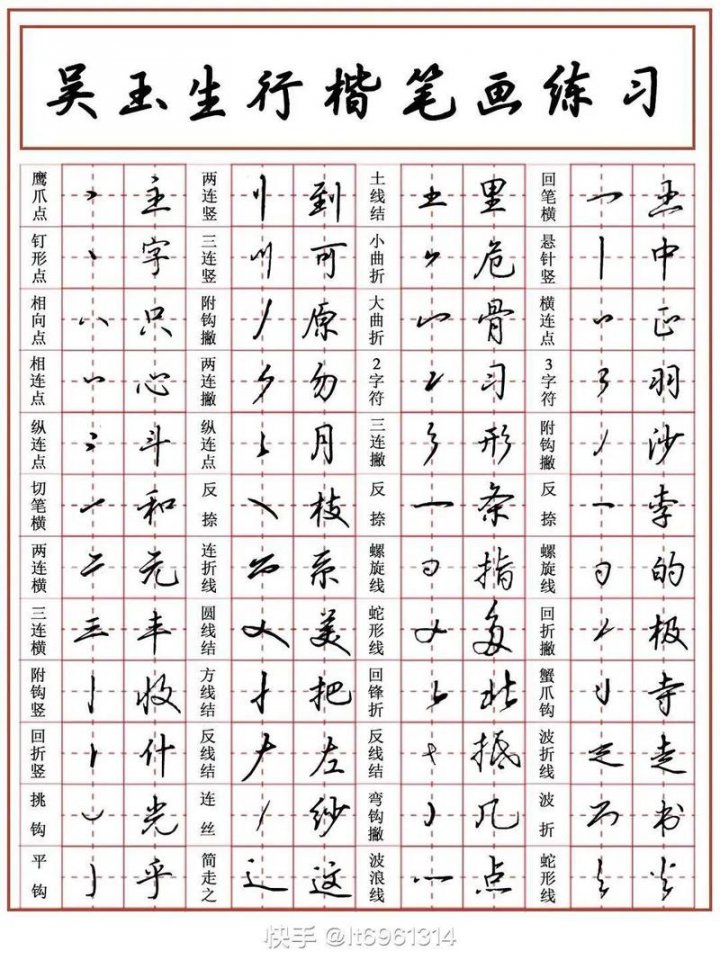 吴玉生行楷笔画练习
鹰爪点 主 两连竖 到 土线结 里 回笔横
钉形点 字 三连竖 可 小曲折 危 悬针竖 中
相向点 只 附钩撇 原 大曲折 骨 横连点 正
相连点 心 两连撇 勿 2字符 习 3字符 羽
纵连点 斗 纵连点 月 三连撇 形 附钩撇 沙
切笔横 和 反捺 枝 反捺 条 反捺 李
两连横 元 连折线 系 螺旋线 指 螺旋线 的
三连横 丰 圆线结 美 蛇形线 多 回折撇 极
附钩竖 收 方线结 把 回锋折 北 蟹爪钩 寺
回折竖 什 反线结 左 反线结 抵 波折线 走
挑钩 光 连丝 纱 弯钩撇 几 波折 书
平钩 乎 简走之 这 波浪线 点 蛇形线
快手 @lt6961314